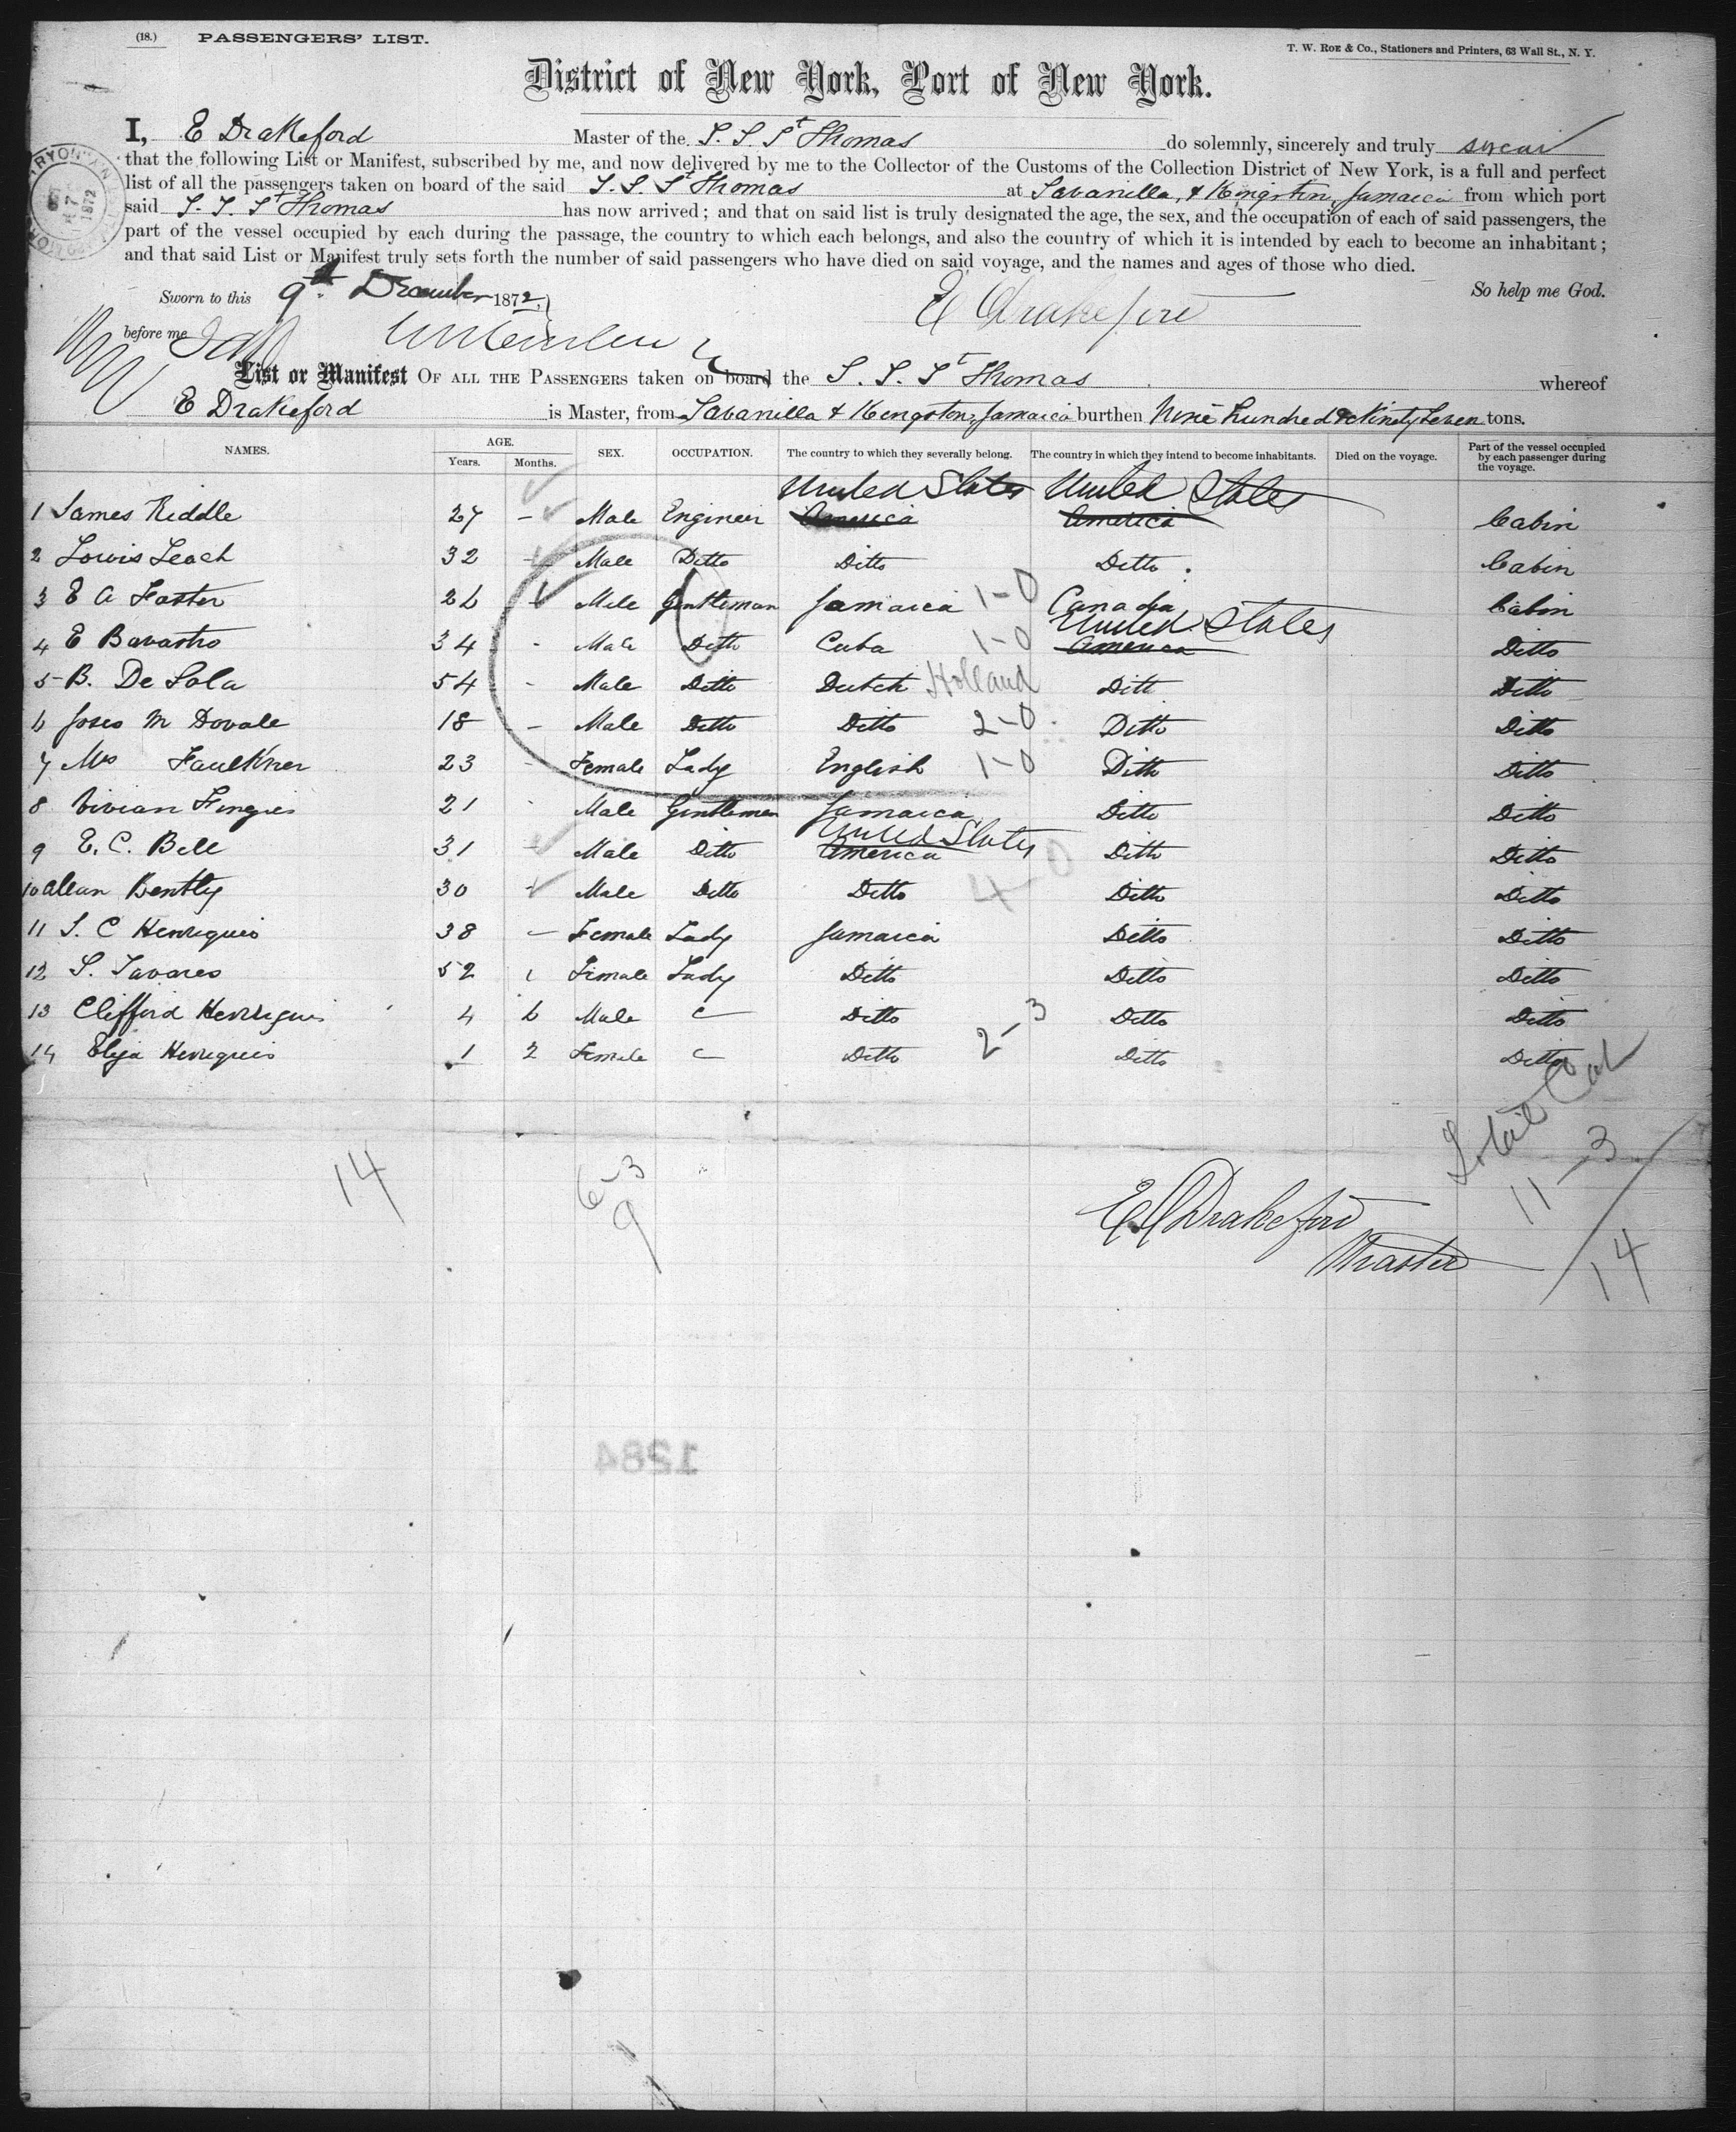 (18.) PASSENGERS' LIST.
T. W. ROE & Co., Stationers and Printers, 63 Wall St., N. Y.
District of New York, Port of New York.
I, E Drakeford Master of the S. S. St Thomas do solemnly, sincerely and truly swear
that the following List or Manifest, subscribed by me, and now delivered by me to the Collector of the Customs of the Collection District of New York, is a full and perfect
list of all the passengers taken on board of the said S. S. St Thomas at Savanilla, & Kingston, Jamaica from which port
said S. S. St Thomas has now arrived; and that on said list is truly designated the age, the sex, and the occupation of each of said passengers, the
part of the vessel occupied by each during the passage, the country to which each belongs, and also the country of which it is intended by each to become an inhabitant;
and that said List or Manifest truly sets forth the number of said passengers who have died on said voyage, and the names and ages of those who died.
1872
Sworn to this 9th December 1872 So help me God.
before me E Drakeford
List or Manifest OF ALL THE PASSENGERS taken on board the S. S. St Thomas whereof
E Drakeford is Master, from Savanilla & Kingston, Jamaica burthen Nine hundred & Ninety Seven tons.
NAMES. AGE. Years. Months. SEX. OCCUPATION. The country to which they severally belong. The country in which they intend to become inhabitants. Died on the voyage. Part of the vessel occupied by each passenger during the voyage.
United States United States
1 James Riddle 27 - Male Engineer America America Cabin
2 Lewis Leach 32 - Male Ditto Ditto Ditto Cabin
3 E A Foster 26 - Male Gentleman Jamaica 1-0 Canada Cabin
United States
4 E Bavastro 34 - Male Ditto Cuba 1-0 America Ditto
5 B. De Sola 54 - Male Ditto Dutch Holland Ditto Ditto
6 M Dovale 18 - Male Ditto Ditto 2-0 Ditto Ditto
7 Mrs Faulkner 23 - Female Lady English 1-0 Ditto Ditto
8 Vivian 21 - Male Gentleman Jamaica Ditto Ditto
United States
9 E. C. Bell 31 - Male Ditto America Ditto Ditto
10 Allan Bently 30 - Male Ditto Ditto 4-0 Ditto Ditto
11 S. C Henriques 38 - Female Lady Jamaica Ditto Ditto
12 S. Tavares 52 Female Lady Ditto Ditto Ditto
13 Clifford Henriques 4 6 Male Ditto 2-3 Ditto Ditto
14 Henriques 1 2 Female Ditto Ditto Ditto
14
6-3
9
Cab
11-3
14
E Drakeford
Master
1284